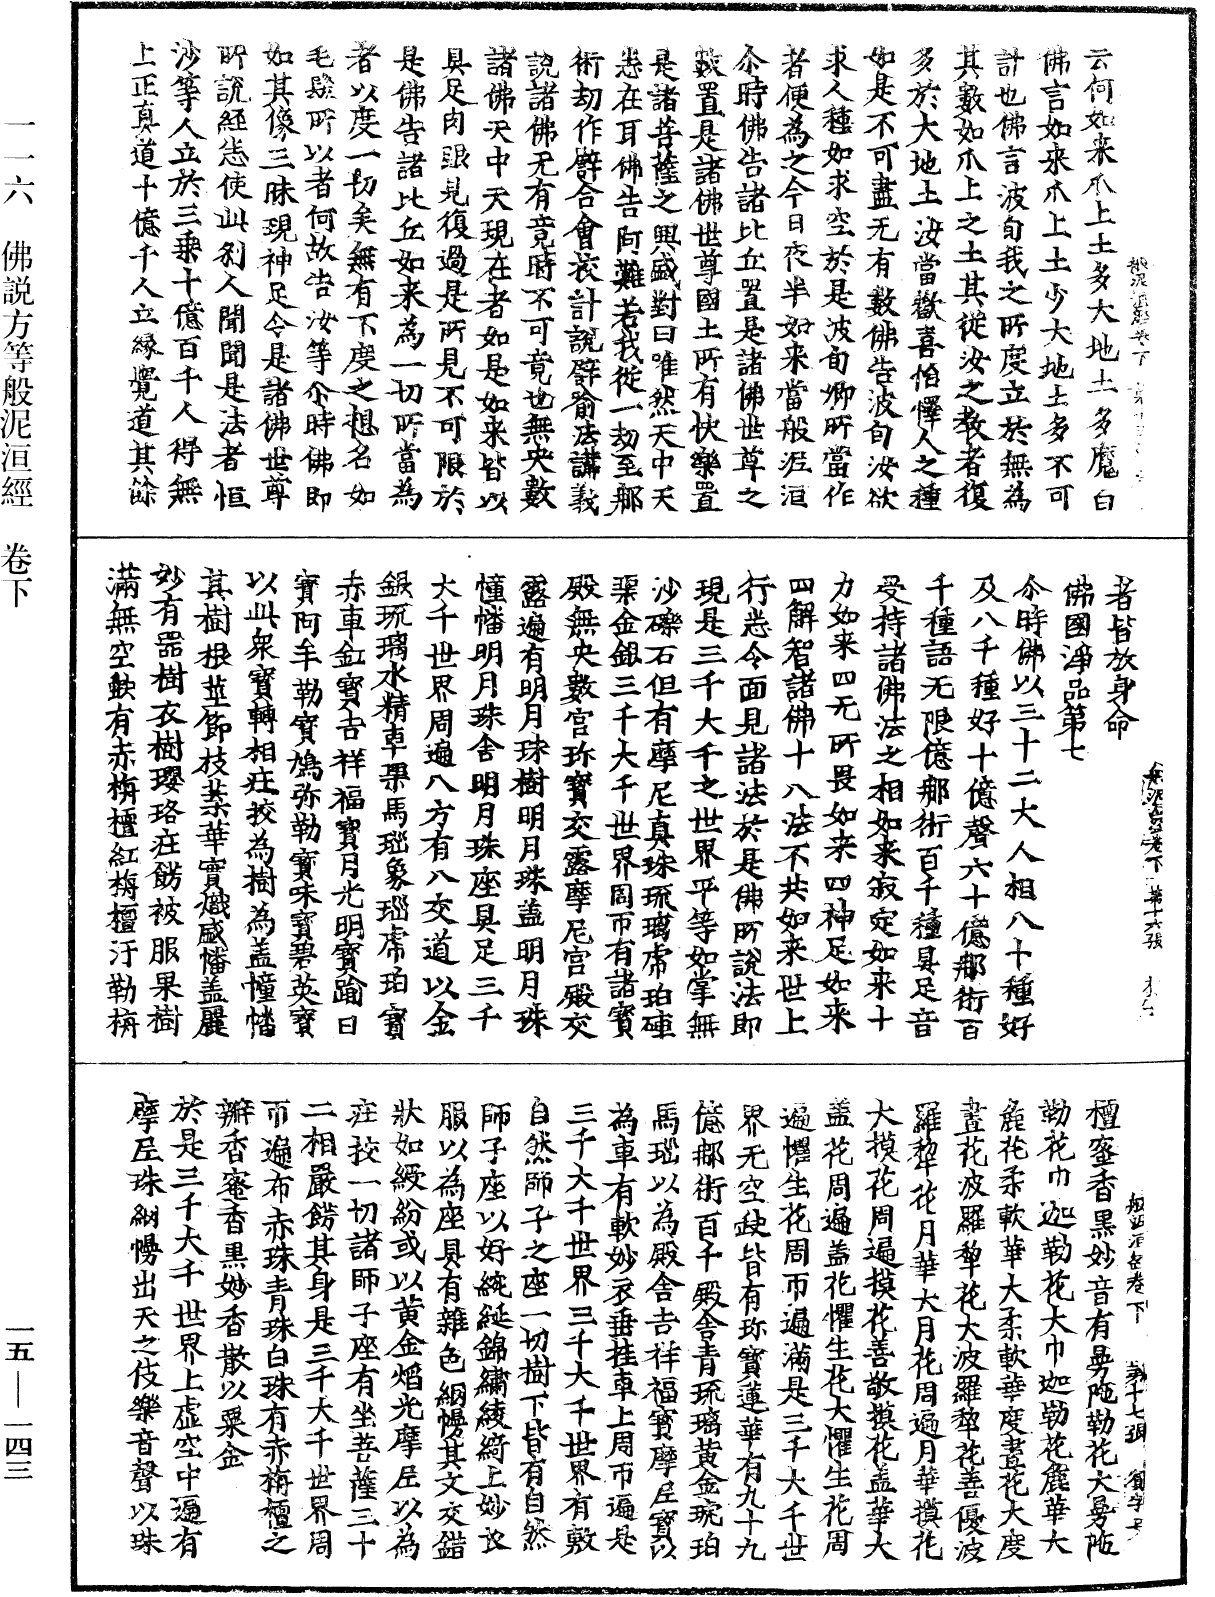 一一六　佛説方等般泥洹經　卷下
一五—一四三
云何如来爪上土多大地土多魔白
佛言如来爪上土少大地土多不可
計也佛言波旬我之所度立於無為
其數如爪上之土其從汝之教者復
多於大地土汝當歡喜怡懌人之種
如是不可盡无有數佛告波旬汝欲
求人種如求空於是波旬卿所當作
者便為之今日夜半如来當般泥洹
尒時佛告諸比丘置是諸佛世尊之
數置是諸佛世尊國土所有快樂置
是諸菩薩之興盛對曰唯然天中天
悉在耳佛告阿難若我從一劫至那
術劫作譬合會挍計說譬喻法講義
說諸佛无有竟時不可竟也無央數
諸佛天中天現在者如是如来皆以
具足肉眼見復過是所見不可限於
是佛告諸比丘如来為一切所當為
者以度一切矣無有不度之想名如
毛髮所以者何故告汝等尒時佛即
如其像三昧現神足令是諸佛世尊
所說經悉使此刹人聞聞是法者恒
沙等人立於三乘十億百千人得無
上正真道十億千人立緣覺道其餘
者皆放身命
佛國淨品第七
尒時佛以三十二大人相八十種好
及八千種好十億聲六十億那術百
千種語无限億那術百千種具足音
受持諸佛法之相如来寂定如来十
力如来四无所畏如来四神足如来
四解智諸佛十八法不共如来世上
行悉令面見諸法於是佛所說法即
現是三千大千之世界平等如掌無
沙礫石但有摩尼真珠琉璃虎珀車
渠金銀三千大千世界周帀有諸寶
殿無央數宫珎寶交露摩尼宫殿交
露遍有明月珠樹明月珠蓋明月珠
幢幡明月珠舍明月珠座具足三千
大千世界周遍八方有八交道以金
銀琉璃水精車渠馬瑙象瑙虎珀寶
赤車𤣥寶吉祥福寶月光明寶踰日
寶阿牟勒寶鳩弥勒寶味寶碧英寶
以此衆寶轉相庄挍為樹為盖幢幡
其樹根莖節枝葉華實熾盛幡盖麗
妙有器樹衣樹瓔珞庄餝被服果樹
滿無空缺有赤栴檀紅栴檀汙勒栴
檀蜜香黑妙音有曼陁勒花大曼陁
勒花巾迦勒花大巾迦勒花麁華大
麁花柔軟華大柔軟華度晝花大度
晝花波羅犁花大波羅犁花善優波
羅犁花月華大月花周遍月華摸花
大摸花周遍摸花善敬摸花盖華大
盖花周遍盖花懼生花大懼生花周
遍懼生花周帀遍滿是三千大千世
界无空缺皆有珎寶蓮華有九十九
億那術百千殿舍青琉璃黄金琥珀
馬瑙以為殿舍吉祥福寶摩尼寶以
為車有軟妙衣垂挂車上周帀遍是
三千大千世界三千大千世界有敷
自然師子之座一切樹下皆有自然
師子座以好綩綖錦繡綾綺上妙衣
服以為座具有雜色網幔其文交錯
狀如綬紛或以黄金焰光摩尼以為
庄挍一切諸師子座有坐菩薩三十
二相嚴餝其身是三千大千世界周
帀遍布赤珠青珠白珠有赤栴檀之
瓣香蜜香黑妙香散以粟金
於是三千大千世界上虚空中遍有
摩尼珠網幔出天之伎樂音聲以珠